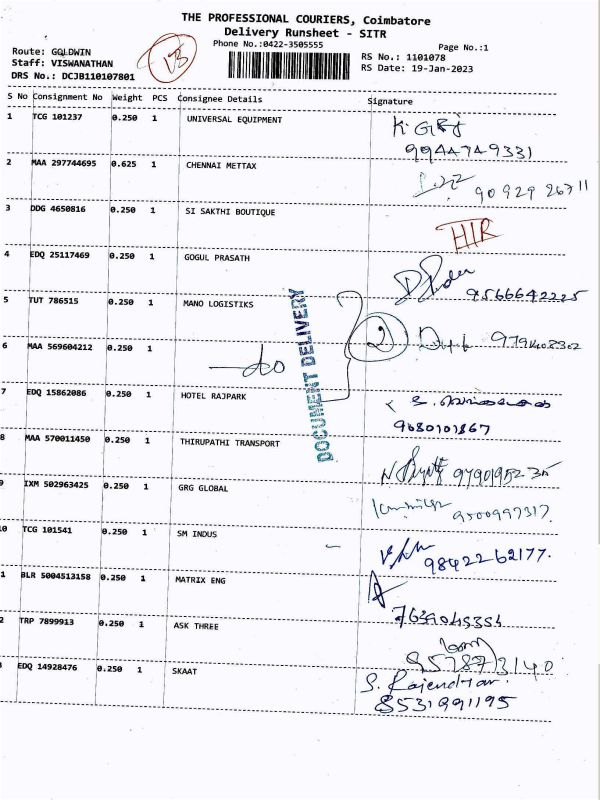 THE PROFESSIONAL COURIERS, Coimbatore
Delivery Runsheet - SITR
Phone No.:0422-3505555
Page No.:1
Route: GOLDWIN
Staff: VISWANATHAN
DRS No.: DCJB110107801
RS No.: 1101078
RS Date: 19-Jan-2023
S No Consignment No Weight PCS Consignee Details Signature
1 TCG 101237 0.250 1 UNIVERSAL EQUIPMENT
9944749331
2 MAA 297744695 0.625 1 CHENNAI METTAX
90929 26711
3 DDG 4650816 0.250 1 SI SAKTHI BOUTIQUE
4 EDQ 25117469 0.250 1 GOGUL PRASATH
9566642225
5 TUT 786515 0.250 1 MANO LOGISTIKS
2
6 MAA 569604212 0.250 1 do
DOCUMENT DELIVERY
7 EDQ 15862086 0.250 1 HOTEL RAJPARK
9080101867
8 MAA 570011450 0.250 1 THIRUPATHI TRANSPORT
9 IXM 502963425 0.250 1 GRG GLOBAL
9500997317.
0 TCG 101541 0.250 1 SM INDUS
98422-62177.
1 BLR 5004513158 0.250 1 MATRIX ENG
2 TRP 7899913 0.250 1 ASK THREE
957873140
3 EDQ 14928476 0.250 1 SKAAT
S. Rajendran.
8531991195